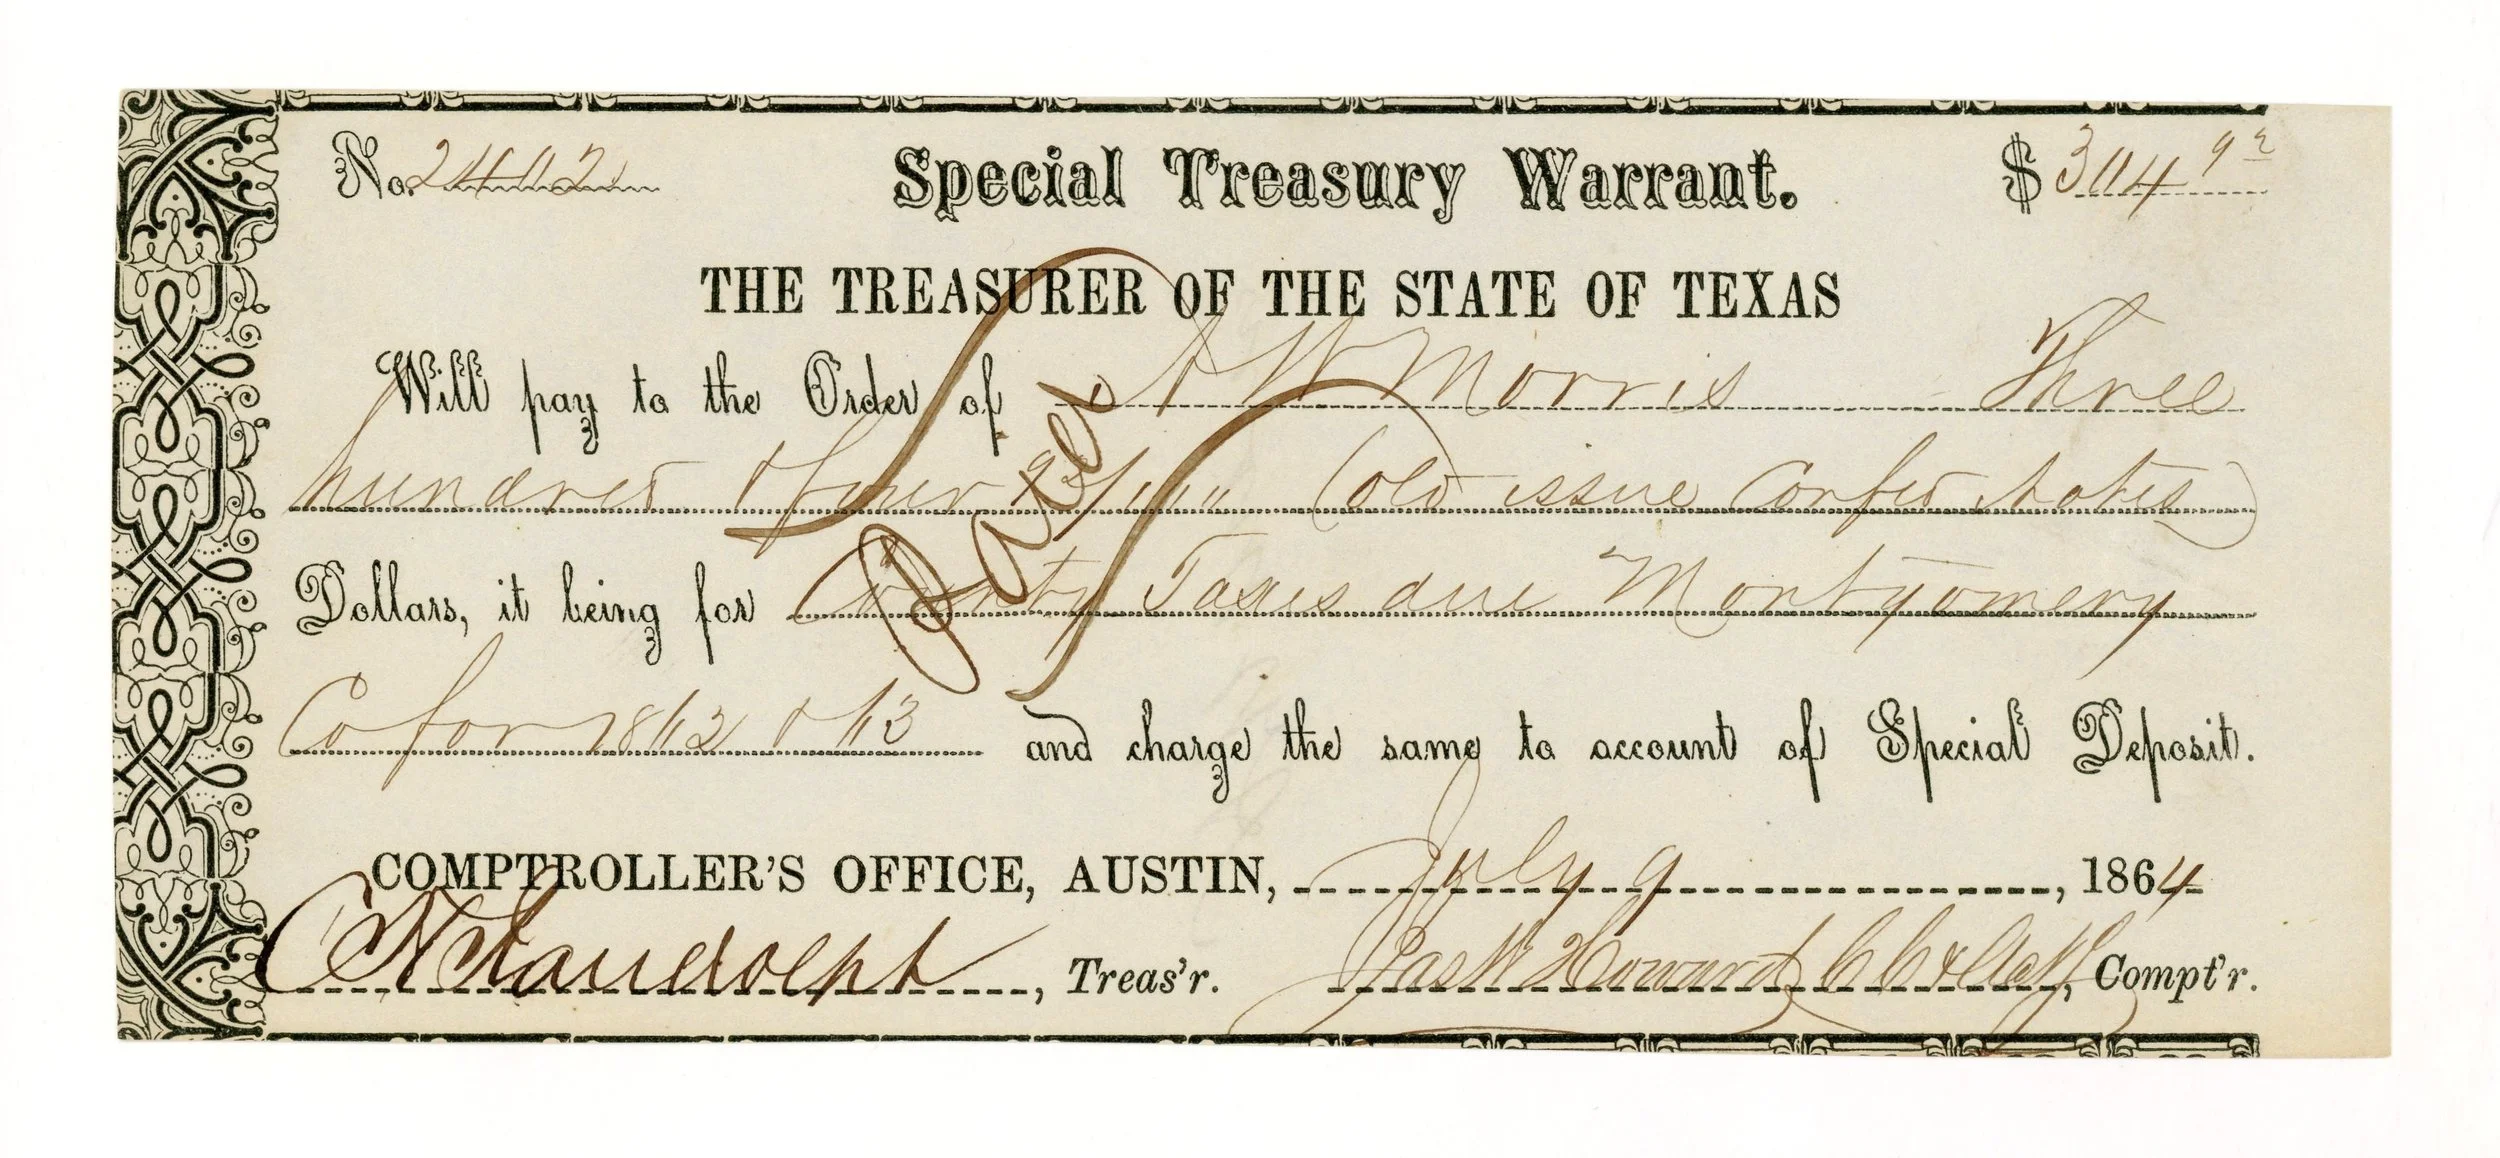 No. 2402 Special Treasury Warrant. $304 92
THE TREASURER OF THE STATE OF TEXAS
Will pay to the Order of A W Morris Three
hundred & four 92/100 (old issue Confed Notes)
Dollars, it being for County Taxes due Montgomery
Co for 1862 & 63 and charge the same to account of Special Deposit.
COMPTROLLER'S OFFICE, AUSTIN, July 9, 1864
C H Randolph, Treas'r. Jas W Howard, Compt'r.
Paid